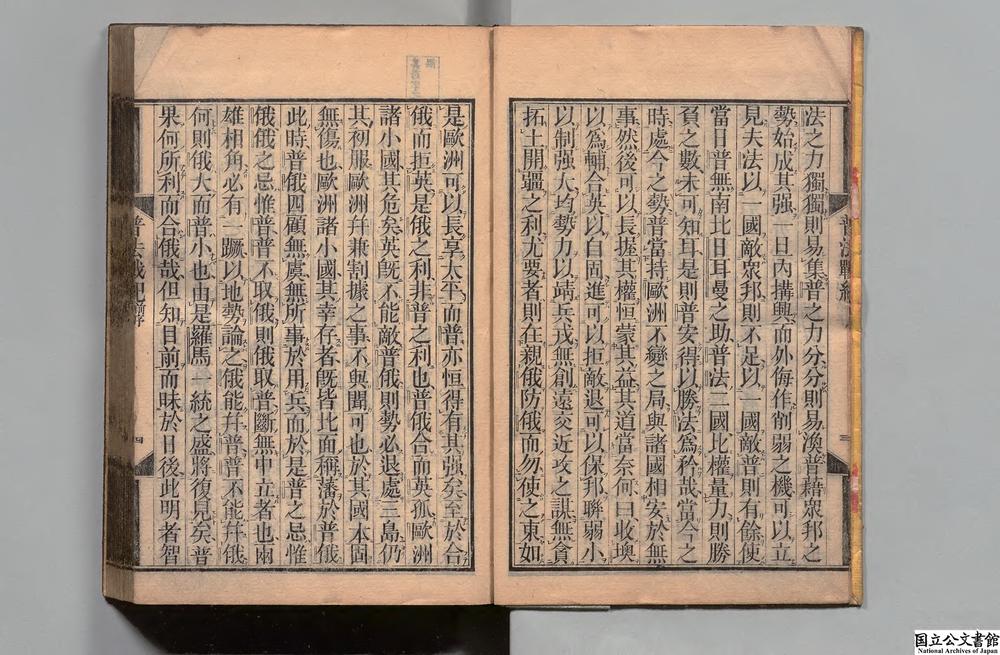 法之力獨獨則易集普之力分分則易渙普藉眾邦之
勢始成其强一旦內搆興而外侮作削弱之機可以立
見夫法以一國敵眾邦則不足以一國敵普則有餘使
當日普無南北日耳曼之助普法二國比權量力則勝
負之數未可知耳是則普安得以勝法爲矜哉當今之
時處今之勢普當持歐洲不變之局與諸國相安於無
事然後可以長握其權恒蒙其益其道當奈何曰收墺
以爲輔合英以自固進可以拒敵退可以保邦聯弱小
以制强大均勢力以靖兵戎無創遠交近攻之謀無貪
拓土開疆之利尤要者則在親俄防俄而勿使之東如
三
是歐洲可以長享太平而普亦恒得有其强矣至於合
俄而拒英是俄之利非普之利也普俄合而英孤歐洲
諸小國其危矣英旣不能敵普俄則勢必退處三島仍
其初服歐洲幷兼割據之事不與聞可也於其國本固
無傷也歐洲諸小國其幸存者旣皆北面稱藩於普俄
此時普俄四顧無虞無所事於用兵而於是普之忌惟
俄俄之忌惟普普不取俄則俄取普斷無中立者也兩
雄相角必有一蹶以地勢論之俄能幷普普不能幷俄
何則俄大而普小也由是羅馬一統之盛將復見矣普
果何所利而合俄哉但知目前而昧於日後此明者智
普法戰紀
四
国立公文書館
National Archives of Japan